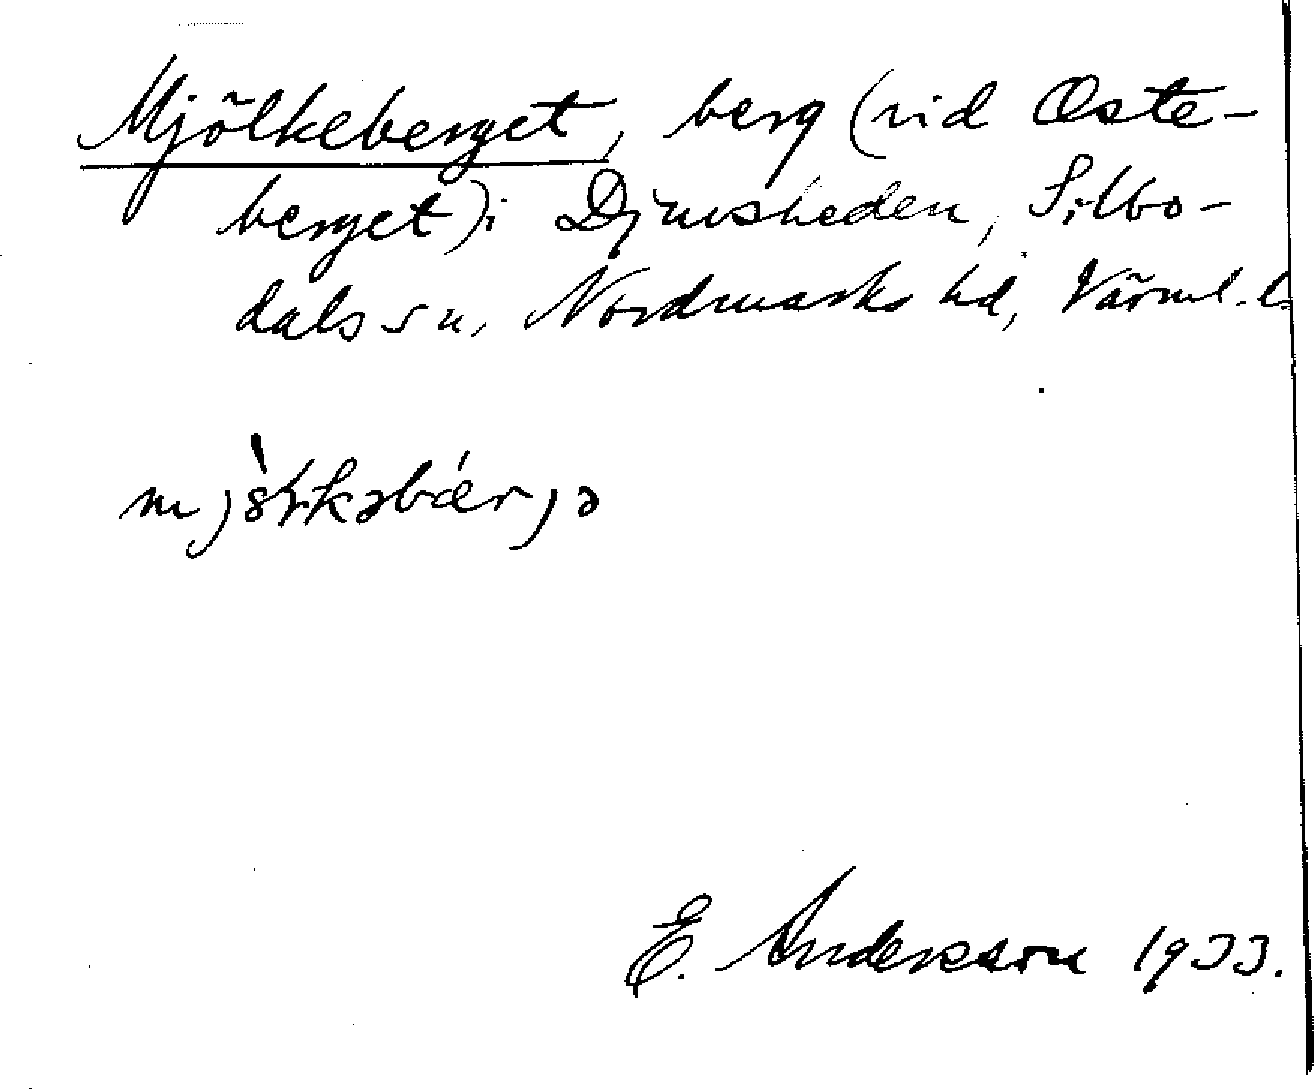 Mjölkeberget, berg (vid Oste-
berget) i Djuvsheden, Silbo-
dals sn, Nordmarks hd, Värml. l.
E. Andersson 1933.